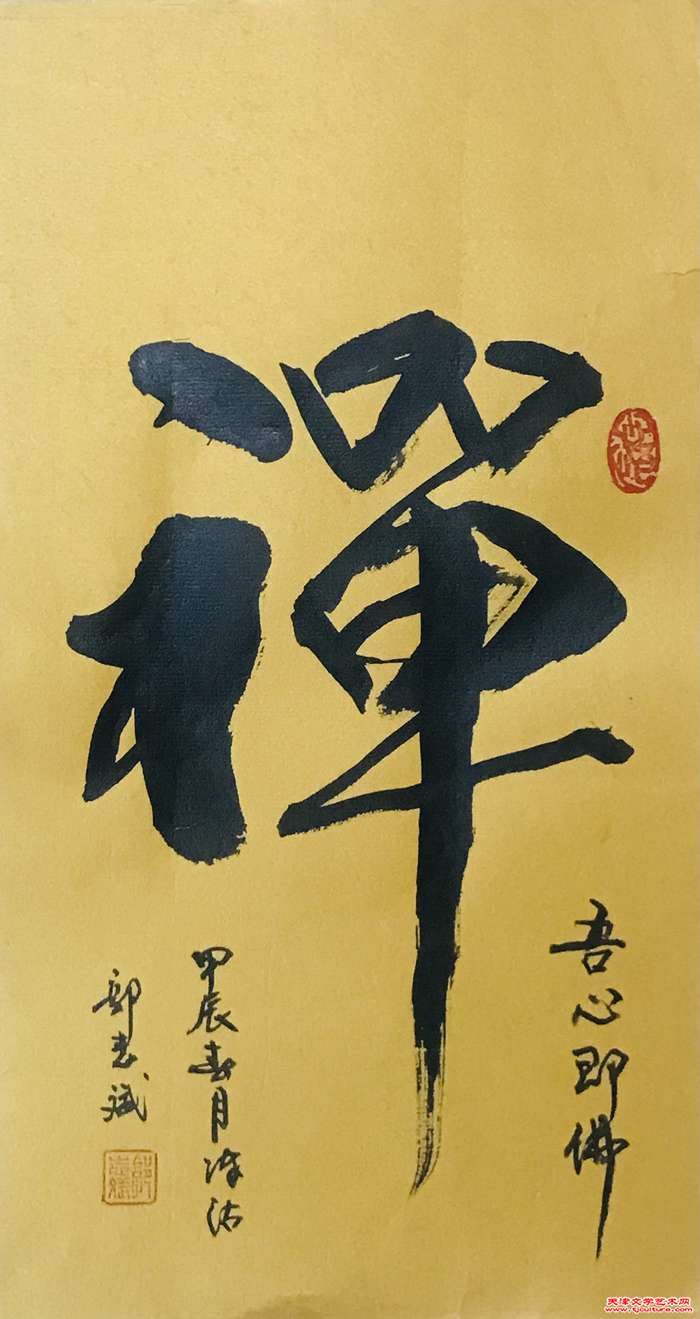 禪
吾心即佛
甲辰春月津沽
郭志斌
天津文学艺术网
www.tjculture.com